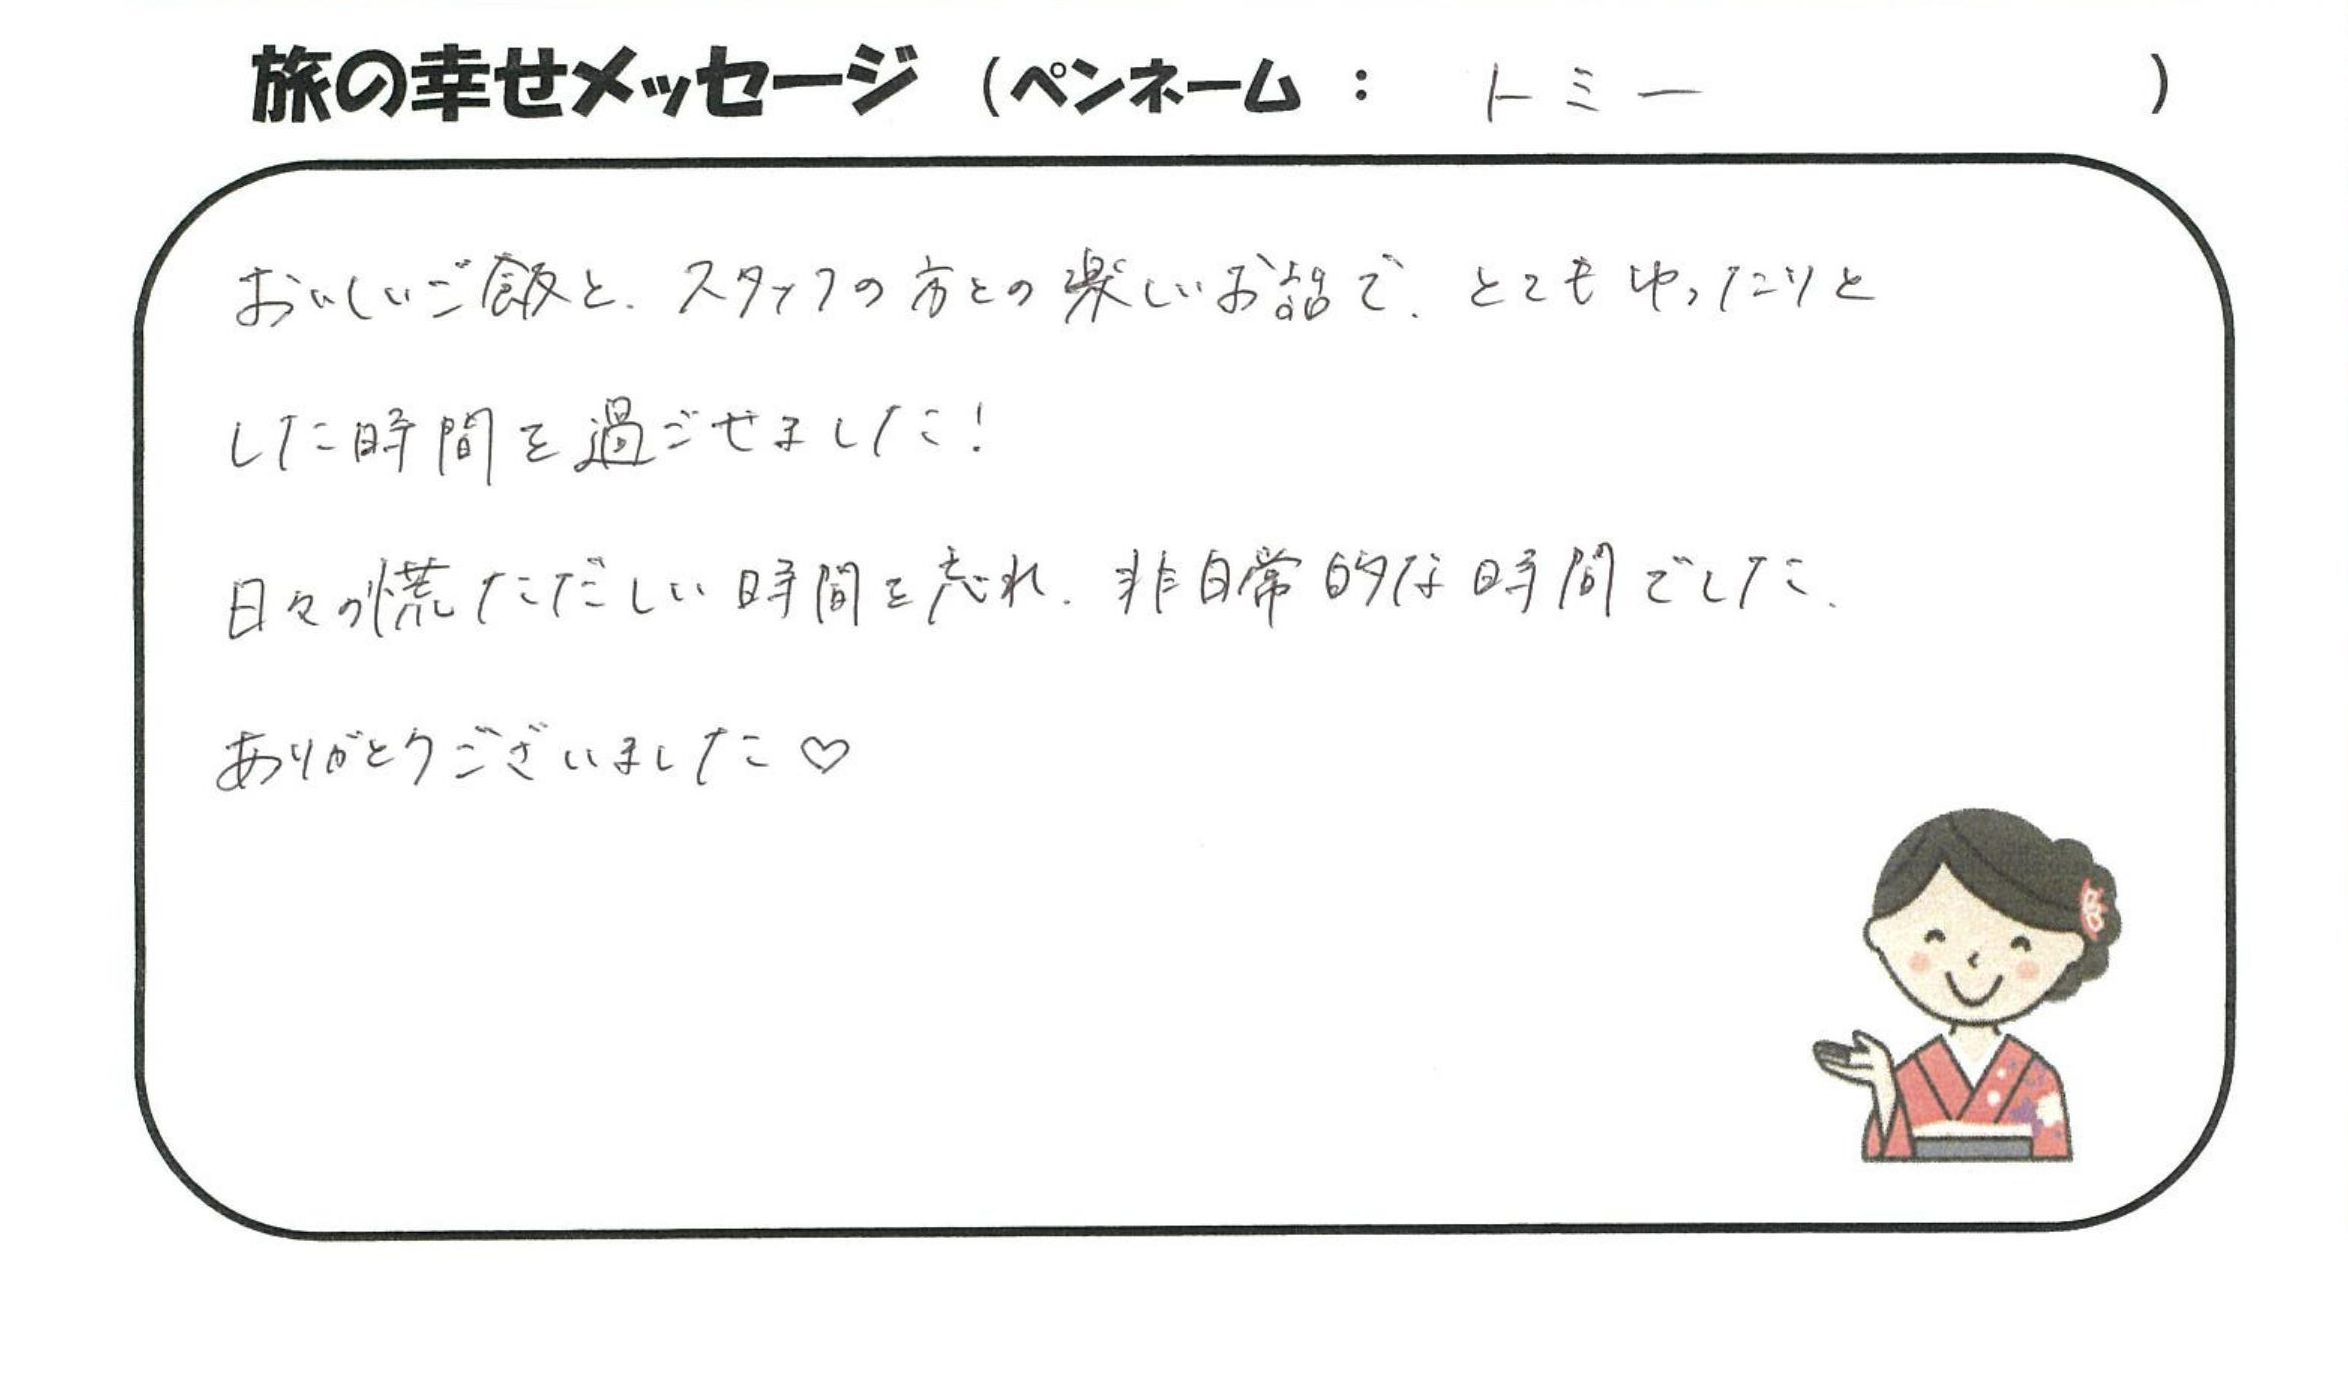 旅の幸せメッセージ (ペンネーム : トミー )
おいしいご飯と、スタッフの方との楽しいお話で、とてもゆったりと
した時間を過ごせました!
日々の慌ただしい時間を忘れ、非日常的な時間でした、
ありがとうございました♡